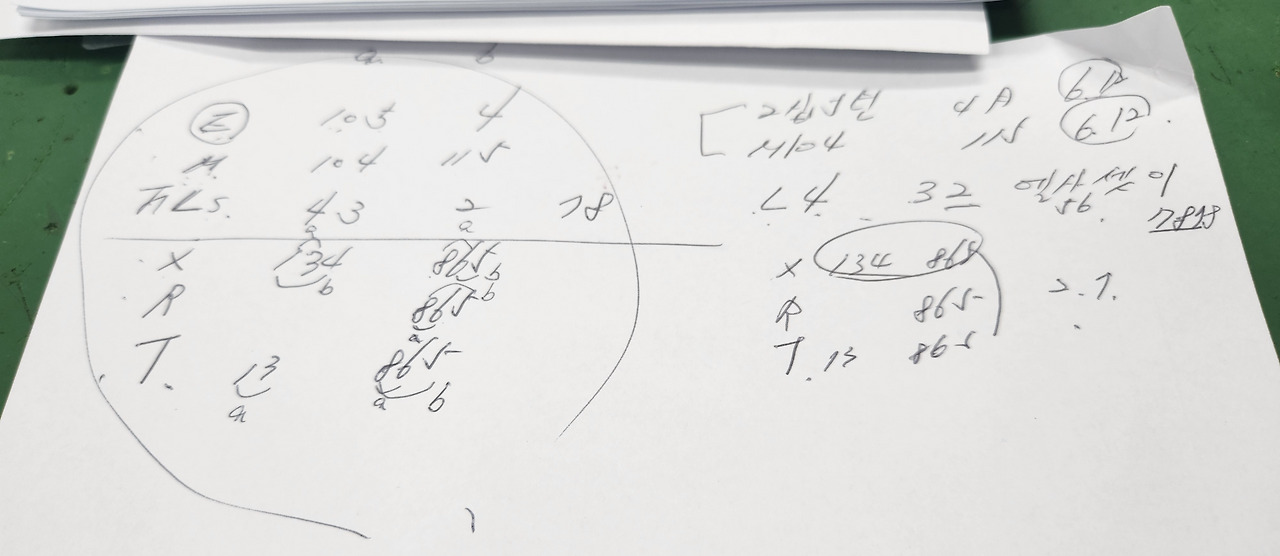 a b
E 103 4
M 104 115
TiLs. 43 2 78
a a
X 134 865
b b
R 865 b
a
T. 13 865
a a b
4A 6.12
M104 115 6.12
L4 32 엘사셋이
56. 7818
X 134 865
R 865 2.7.
T. 13 865